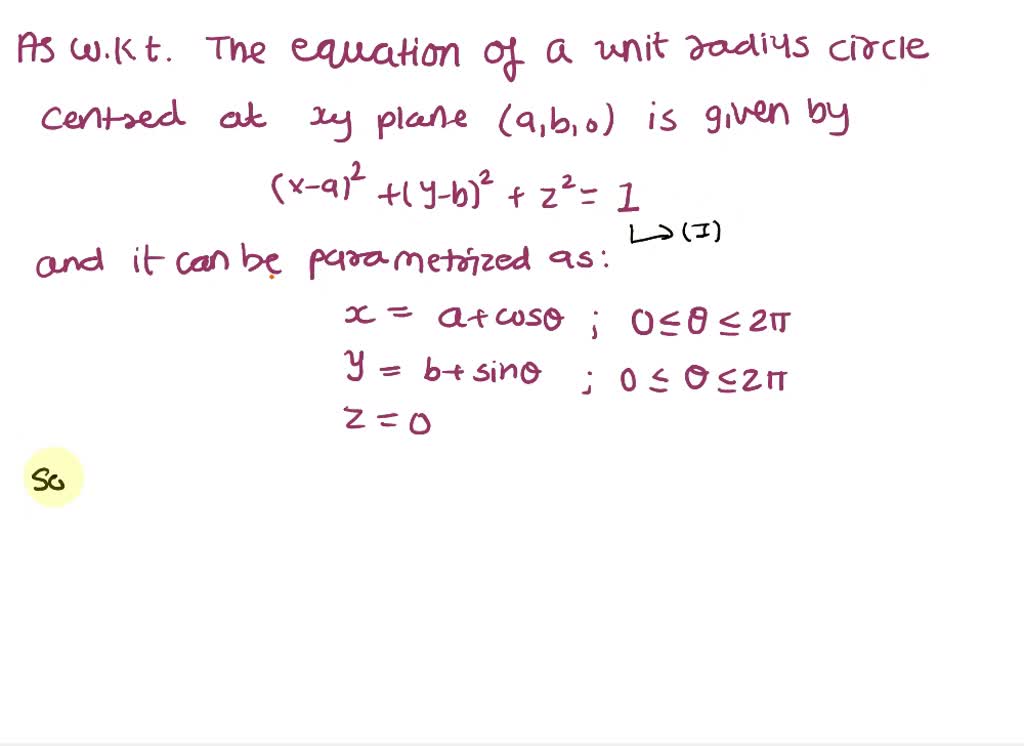 As w.k t. The equation of a unit radius circle
centred at xy plane (a,b,0) is given by
(x-a)² + (y-b)² + z² = 1
↳ (I)
and it can be parametrized as:
x = a + cosθ ; 0 ≤ θ ≤ 2π
y = b + sinθ ; 0 ≤ θ ≤ 2π
z = 0
So